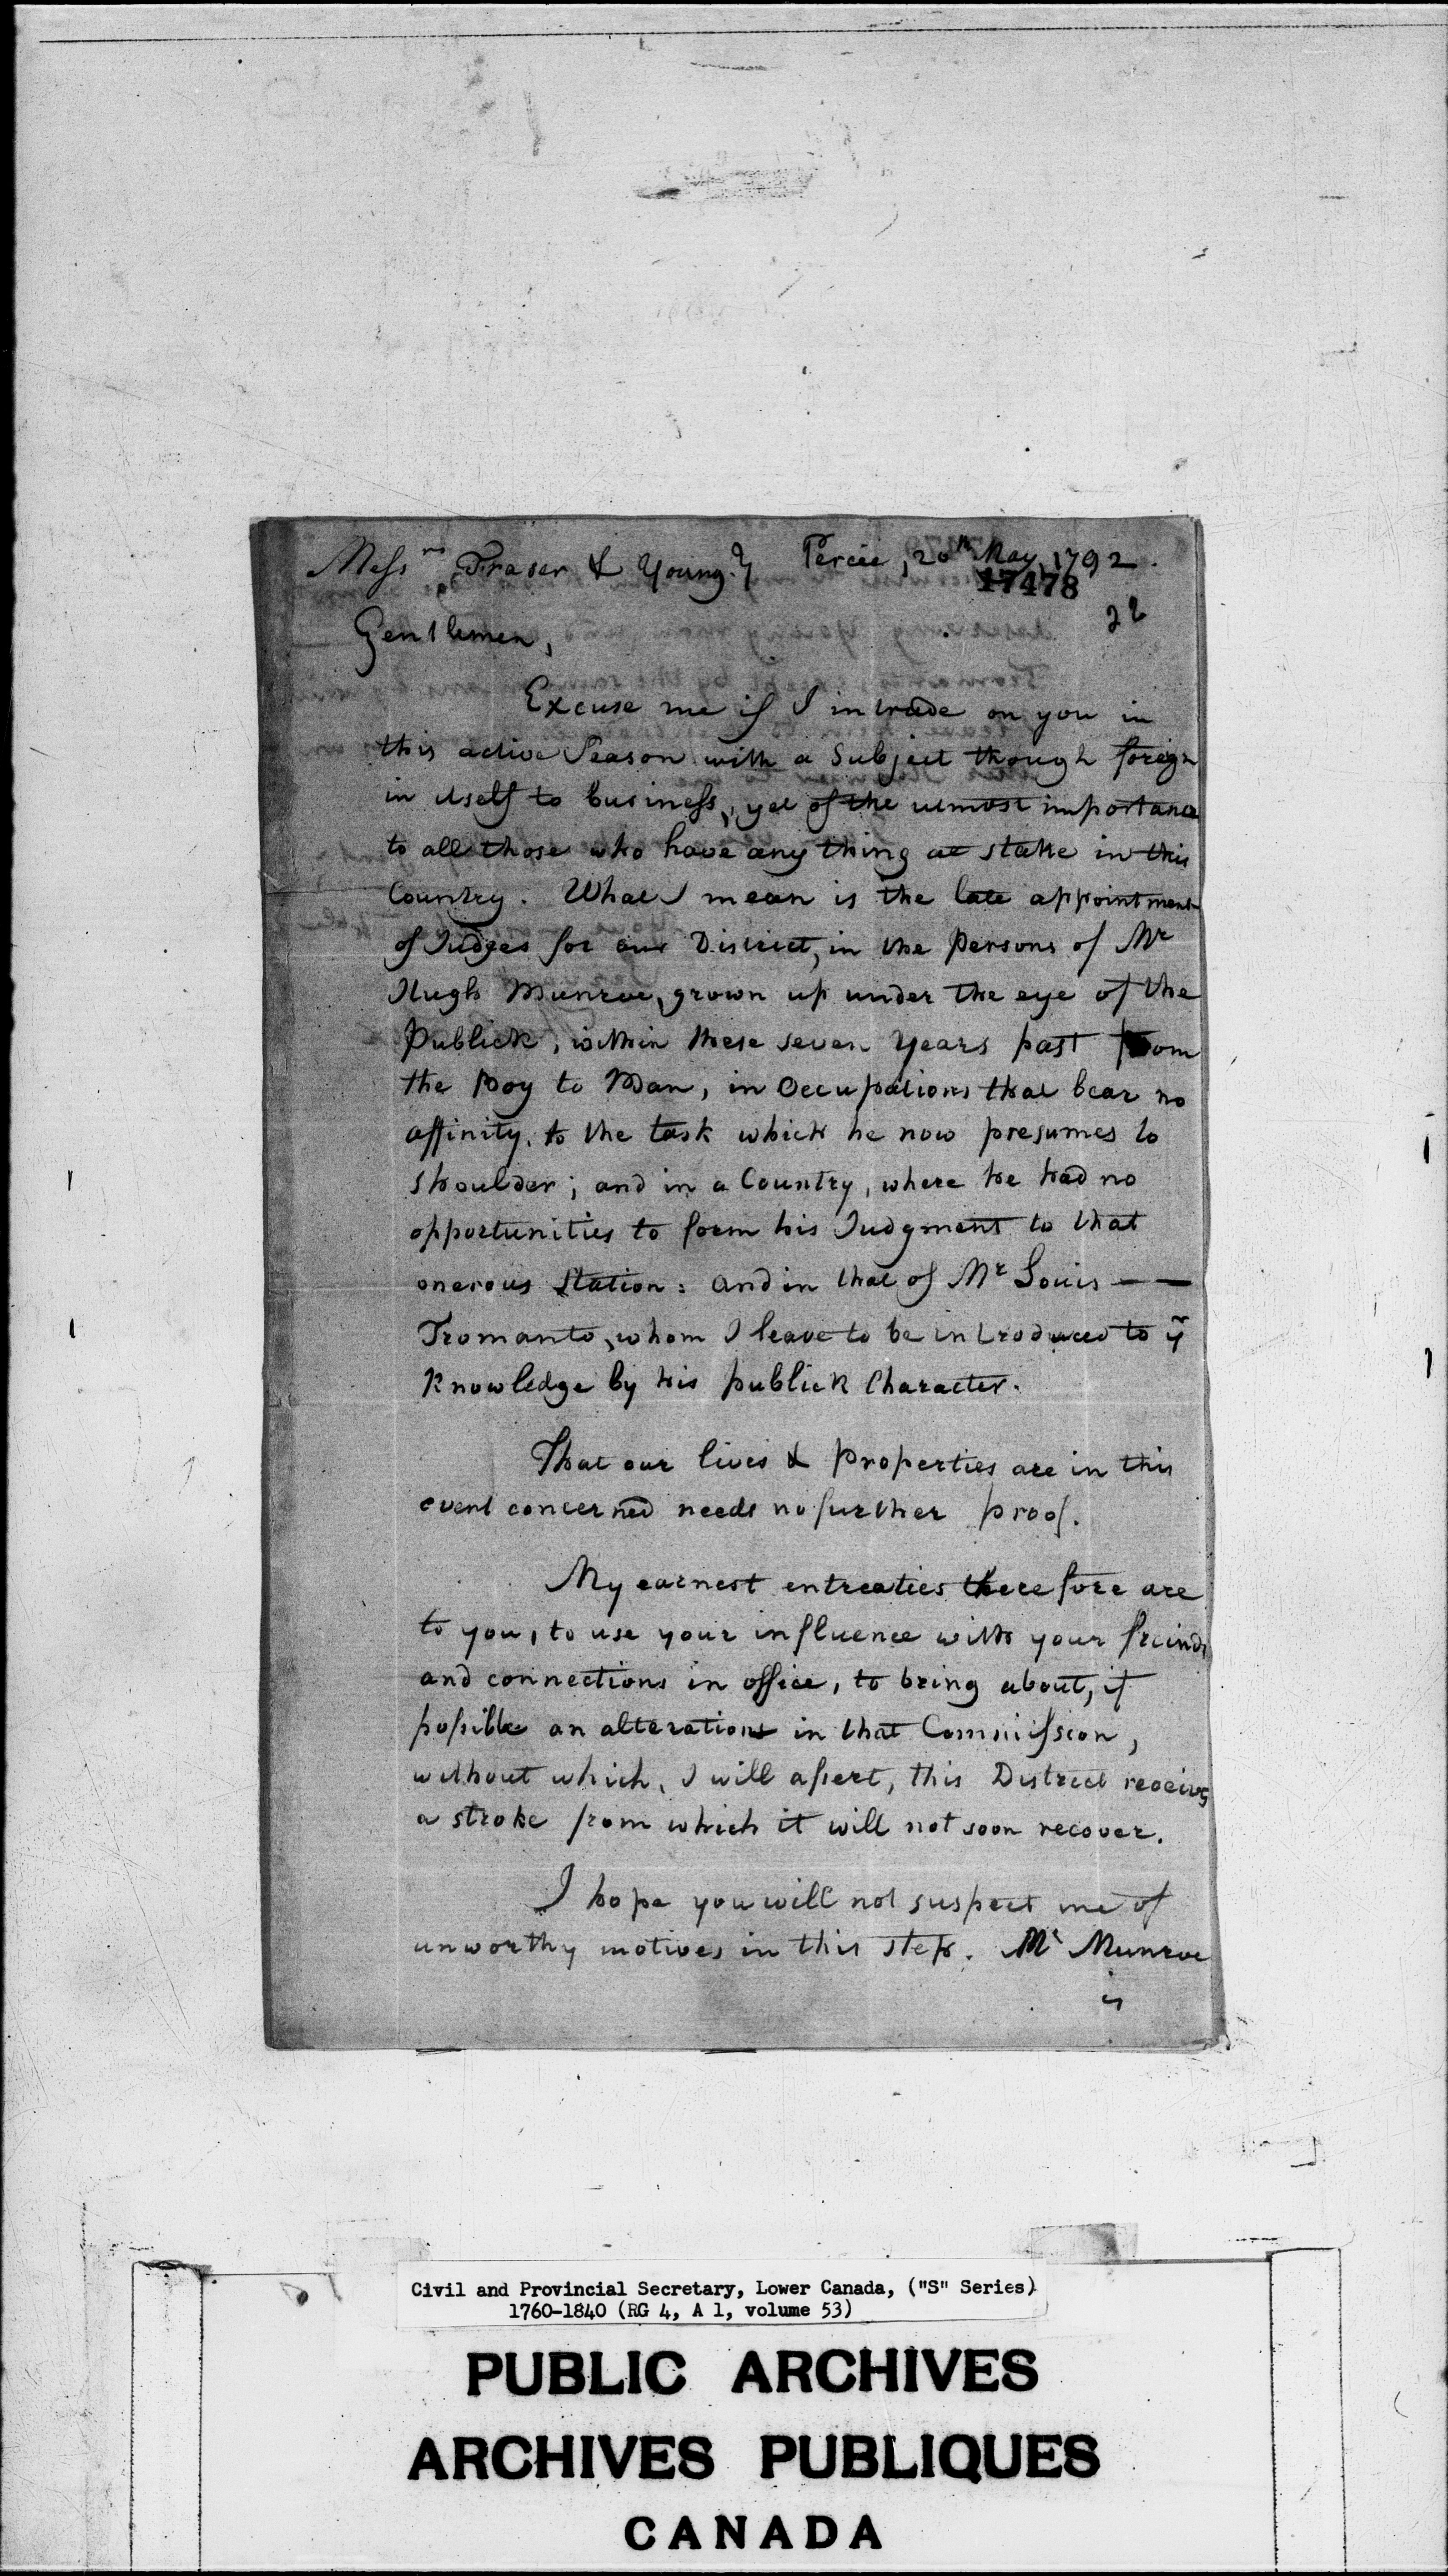 Messrs Fraser & Young. Percée, 20th May, 1792.
17478
Gentlemen,
Excuse me if I intrude on you in
this active Season with a Subject though foreign
in itself to business, yet of the utmost importance
to all those who have any thing at stake in this
Country. What I mean is the late appointment
of Judges for our District, in the Persons of Mr
Hugh Munroe, grown up under the eye of the
Publick, within these seven years past from
the Boy to Man, in Occupations that bear no
affinity, to the task which he now presumes to
shoulder; and in a Country, where he had no
opportunities to form his Judgment to that
onerous Station: and in that of Mr Louis — —
Fromanto, whom I leave to be introduced to yr
Knowledge by his publick Character.
That our lives & Properties are in this
event concerned needs no further proof.
My earnest entreaties therefore are
to you, to use your influence with your freinds
and connections in office, to bring about, if
possible an alteration in that Commission,
without which, I will assert, this District receives
a stroke from which it will not soon recover.
I hope you will not suspect me of
unworthy motives in this step. Mr Munroe
is
Civil and Provincial Secretary, Lower Canada, ("S" Series)
1760-1840 (RG 4, A 1, volume 53)
PUBLIC ARCHIVES
ARCHIVES PUBLIQUES
CANADA